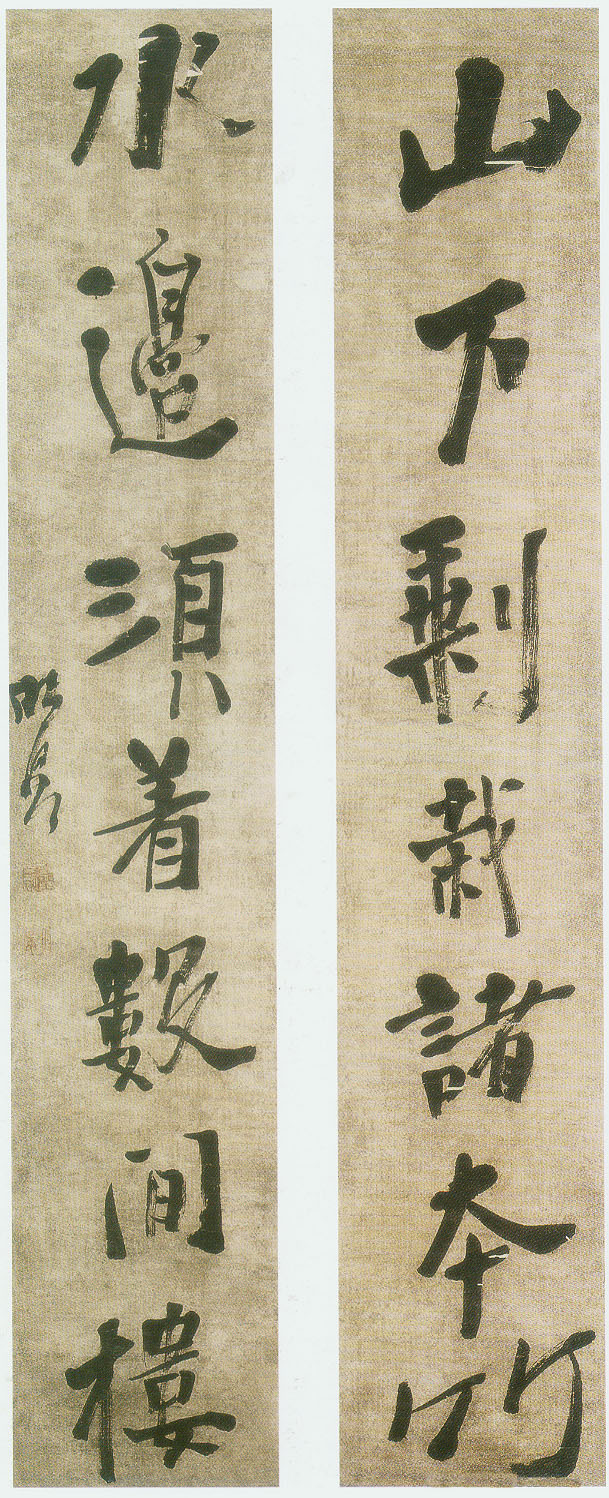 山下剩栽諸本竹
水邊須着數間樓